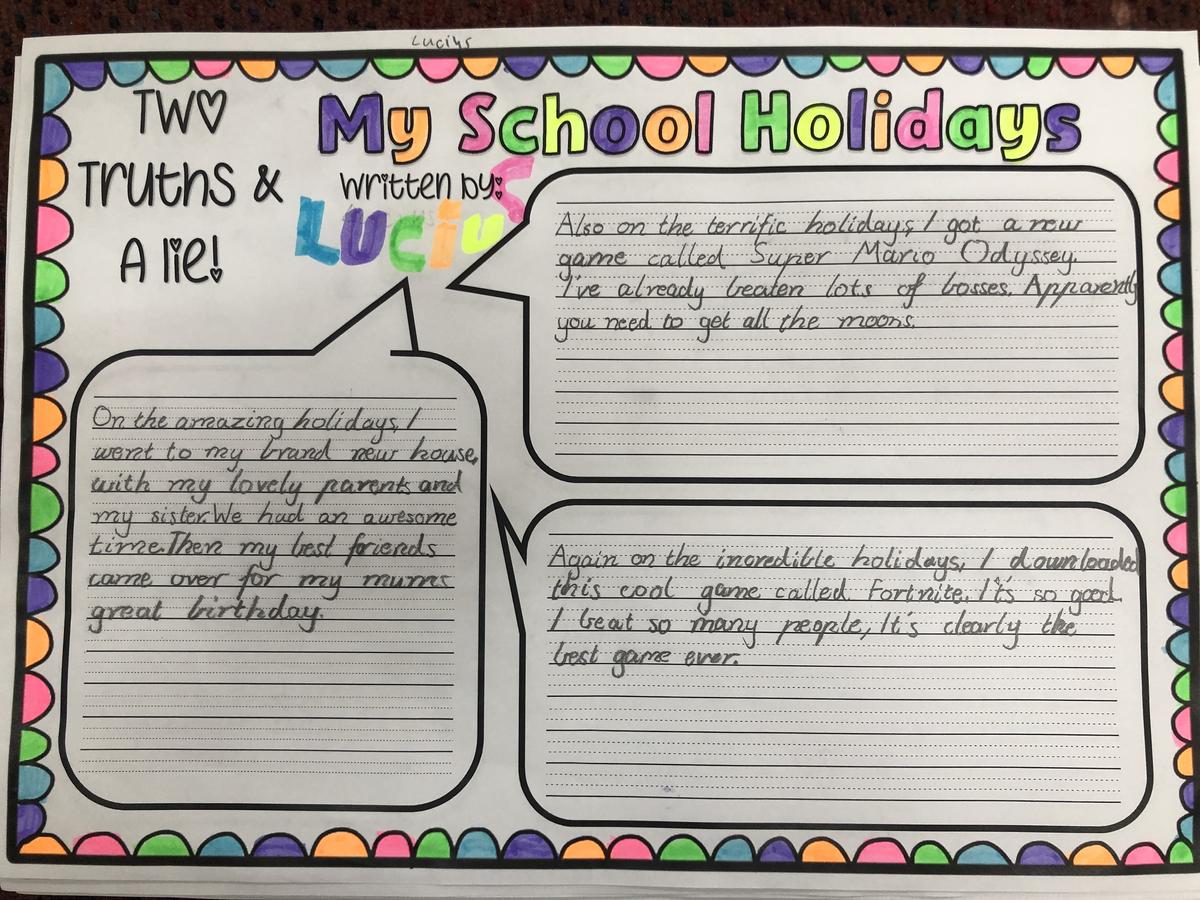 Lucius
TWO
Truths &
A lie!
My School Holidays
written by:
Lucius
Also on the terrific holidays, I got a new
game called Super Mario Odyssey.
I've already beaten lots of bosses. Apparently
you need to get all the moons.
On the amazing holidays, I
went to my brand new house,
with my lovely parents and
my sister. We had an awesome
time. Then my best friends
came over for my mums
great birthday.
Again on the incredible holidays, I downloaded
this cool game called Fortnite. It's so good.
I beat so many people, It's clearly the
best game ever.